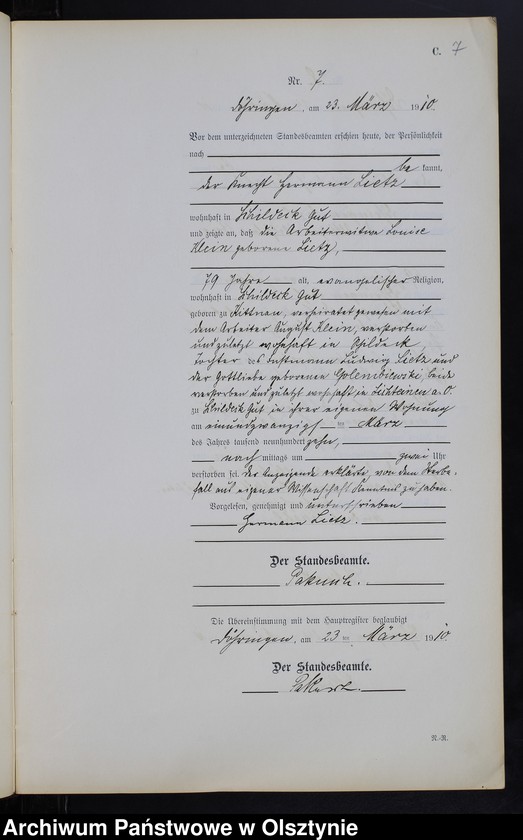 C. 7
Nr. 7.
Döhringen, am 23. März 1910.
Vor dem unterzeichneten Standesbeamten erschien heute, der Persönlichkeit
nach
be kannt,
der Knecht Hermann Lietz
wohnhaft in Schildeck Gut
und zeigte an, daß die Arbeiterwitwe Louise
Klein geborene Lietz,
79 Jahre alt, evangelischer Religion,
wohnhaft in Schildeck Gut
geboren zu verheiratet gewesen mit
dem Arbeiter August Klein, verstorben
und zuletzt wohnhaft in Schildeck,
Tochter des Ludwig Lietz und
der Gottliebe geborenen Golembiewski, beide
verstorben und zuletzt wohnhaft in a. O.
zu Schildeck Gut in ihrer eigenen Wohnung
am einundzwanzigs ten März
des Jahres tausend neunhundert zehn,
nach mittags um zwei Uhr
verstorben sei. Der Anzeigende erklärte, von dem Sterbe-
fall aus eigener Wissenschaft Kenntnis zu haben.
Vorgelesen, genehmigt und unterschrieben
Hermann Lietz.
Der Standesbeamte.
Die Übereinstimmung mit dem Hauptregister beglaubigt
Döhringen, am 23 ten März 1910.
Der Standesbeamte.
N.-R.
Archiwum Państwowe w Olsztynie